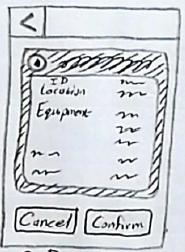 <
ID
Location
Equipment
Cancel Confirm